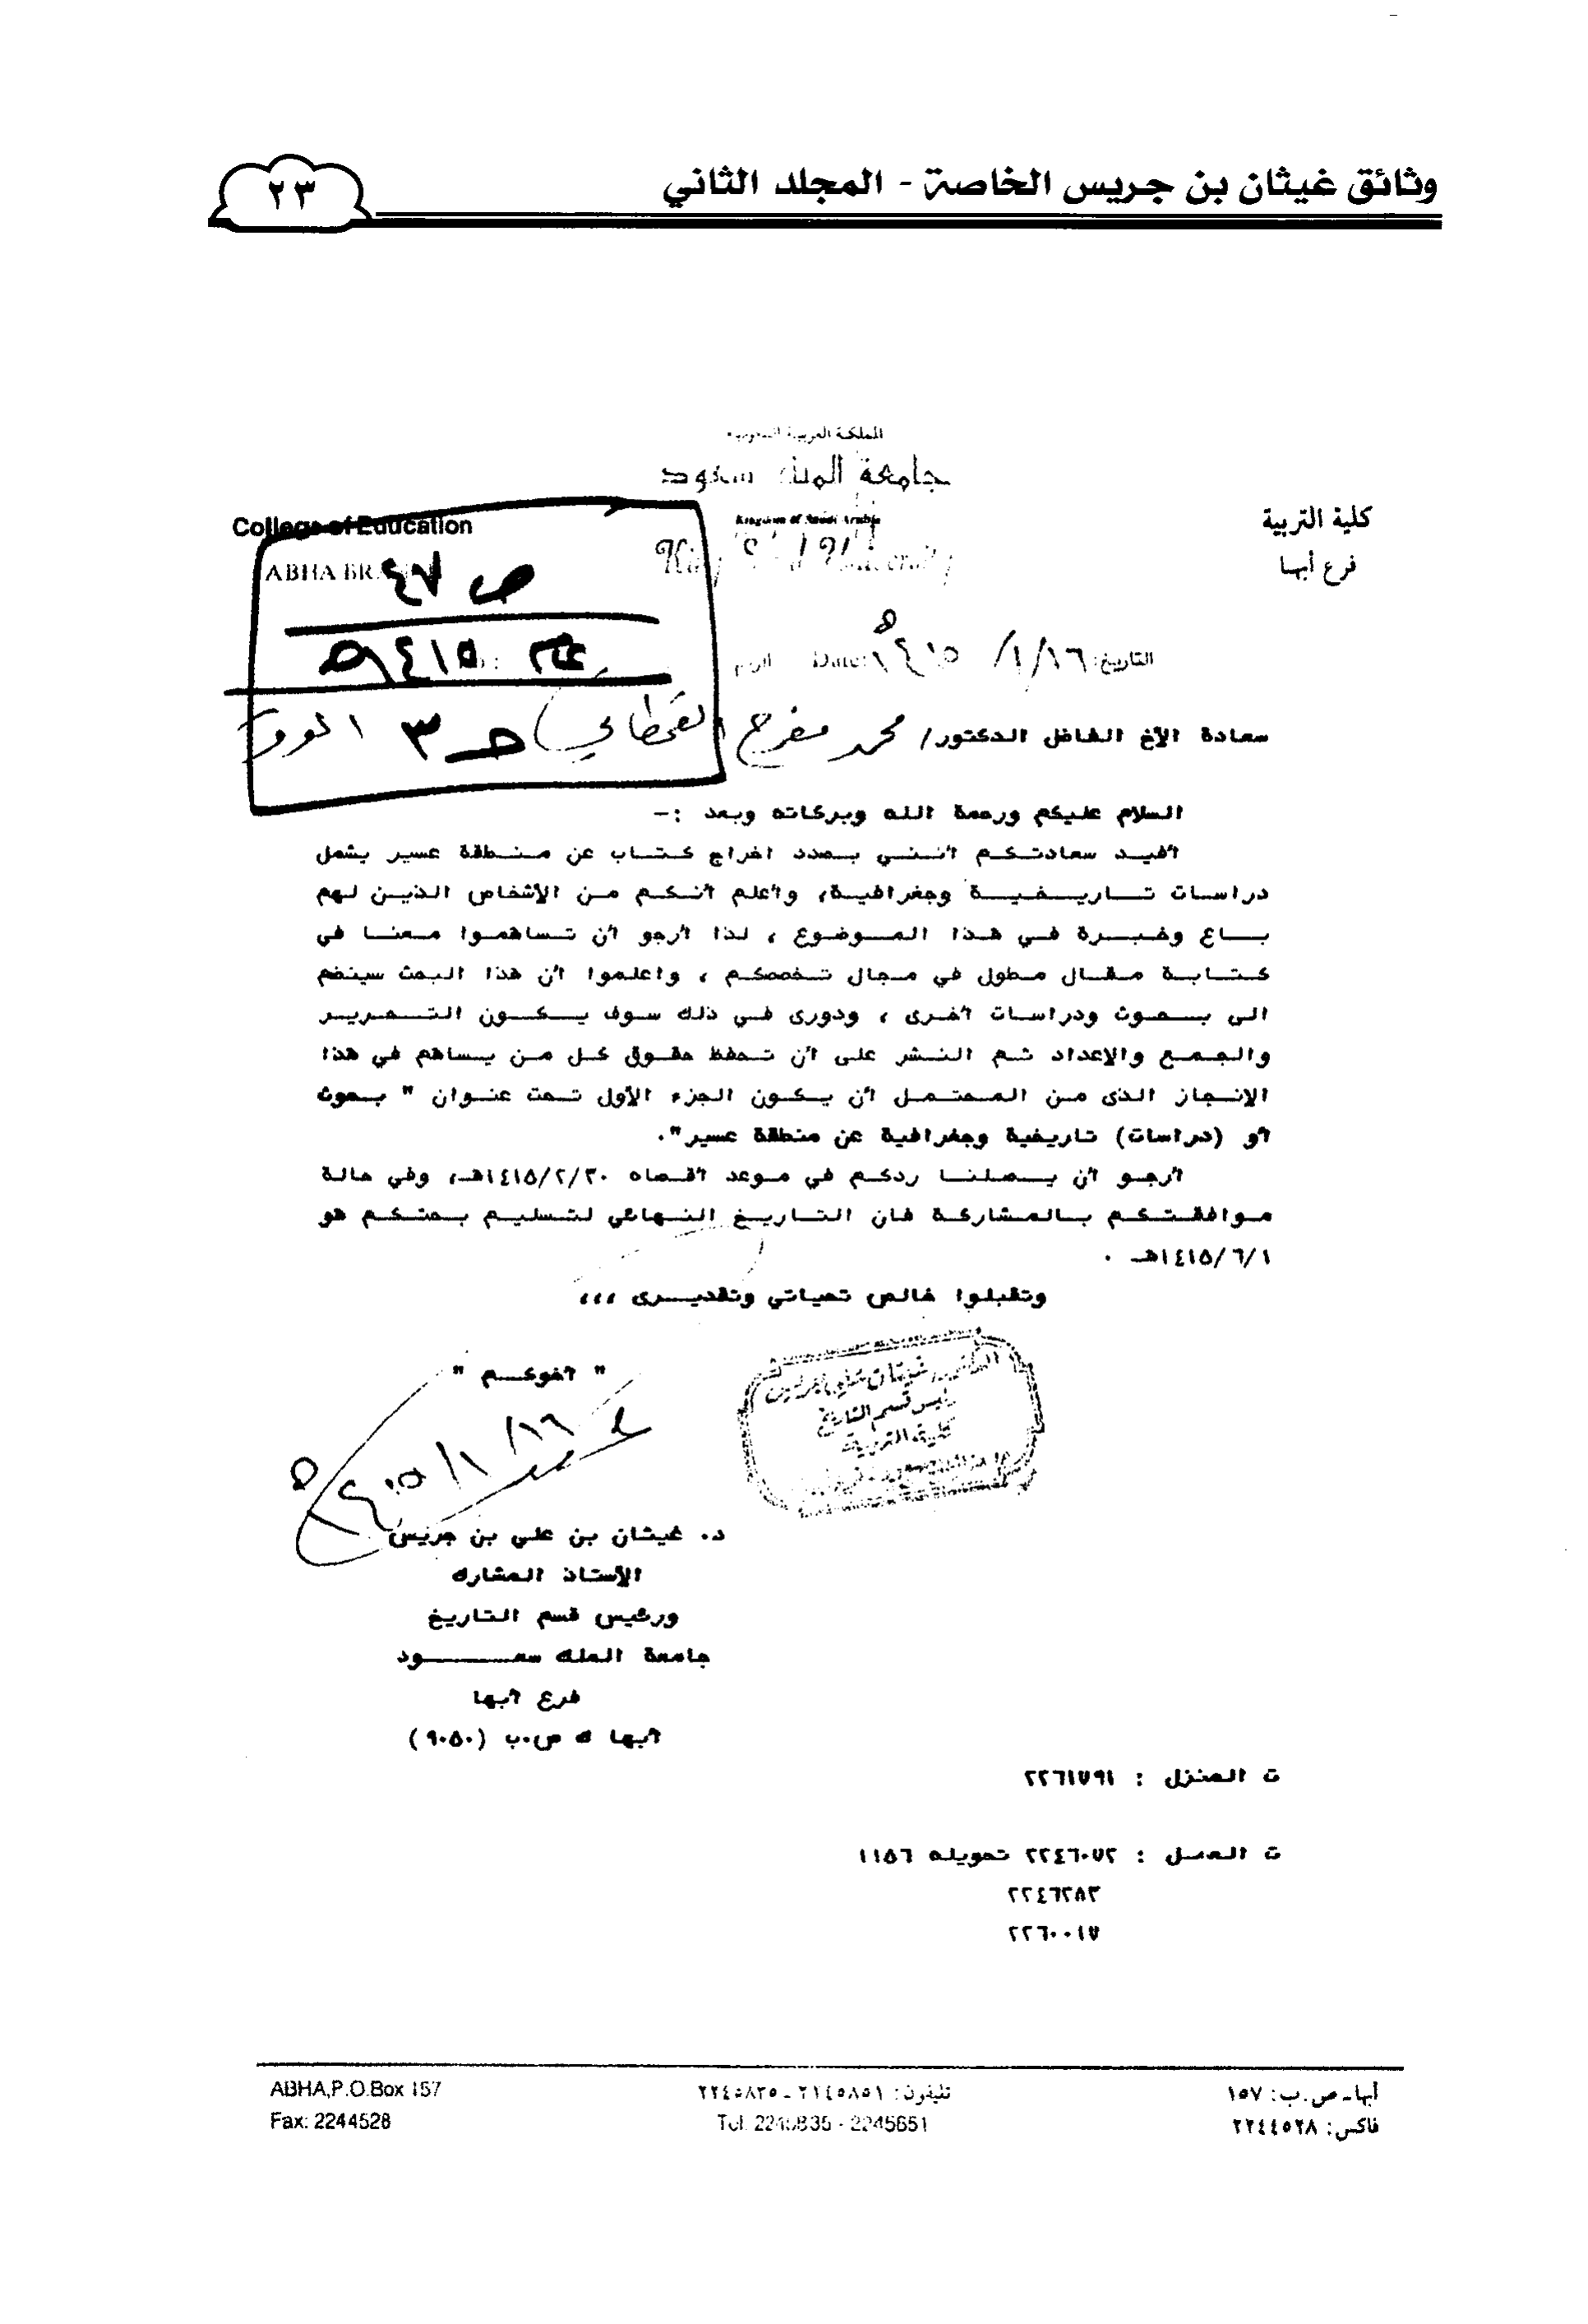 وثائق غيثان بن جريس الخاصة - المجلد الثاني
٢٣
المملكة العربية السعودية
جامعة الملك سعود
Kingdom of Saudi Arabia
King Saud University
كلية التربية
فرع أبها
College of Education
ABHA BR
ص ٤٧
عام ١٤١٥هـ
حـ ٣
التاريخ: ١٤١٥/١/١٦هـ Date:
سعادة الأخ الفاضل الدكتور/ محمد مفرح القحطاني
السلام عليكم ورحمة الله وبركاته وبعد :-
أفيد سعادتكم أننى بصدد اخراج كتاب عن منطقة عسير يشمل
دراسات تاريخية وجغرافية، وأعلم أنكم من الأشخاص الذين لهم
باع وخبرة في هذا الموضوع ، لذا أرجو أن تساهموا معنا في
كتابة مقال مطول في مجال تخصصكم ، واعلموا أن هذا البحث سينضم
الى بحوث ودراسات أخرى ، ودورى في ذلك سوف يكون التحرير
والجمع والإعداد ثم النشر على أن تحفظ حقوق كل من يساهم في هذا
الإنجاز الذى من المحتمل أن يكون الجزء الأول تحت عنوان " بحوث
أو (دراسات) تاريخية وجغرافية عن منطقة عسير".
أرجو أن يصلنا ردكم في موعد أقصاه ١٤١٥/٢/٣٠هـ، وفي حالة
موافقتكم بالمشاركة فان التاريخ النهائي لتسليم بحثكم هو
١٤١٥/٦/١هـ .
وتقبلوا خالص تحياتي وتقديرى ،،،
" أخوكم "
١٤١٥/١/١٦هـ
الدكتور غيثان علي جريس
رئيس قسم التاريخ
كلية التربية
د. غيثان بن علي بن جريس
الأستاذ المشارك
ورئيس قسم التاريخ
جامعة الملك سعود
فرع أبها
أبها ص.ب (٩٠٥٠)
ت المنزل : ٢٢٦١٧٩١
ت العمل : ٢٢٤٦٠٧٢ تحويله ١١٥٦
٢٢٤٦٢٨٣
٢٢٦٠٠١٧
أبها ـ ص. ب: ١٥٧
فاكس: ٢٢٤٤٥٢٨
تليفون:
Tel.
ABHA,P.O.Box 157
Fax: 2244528